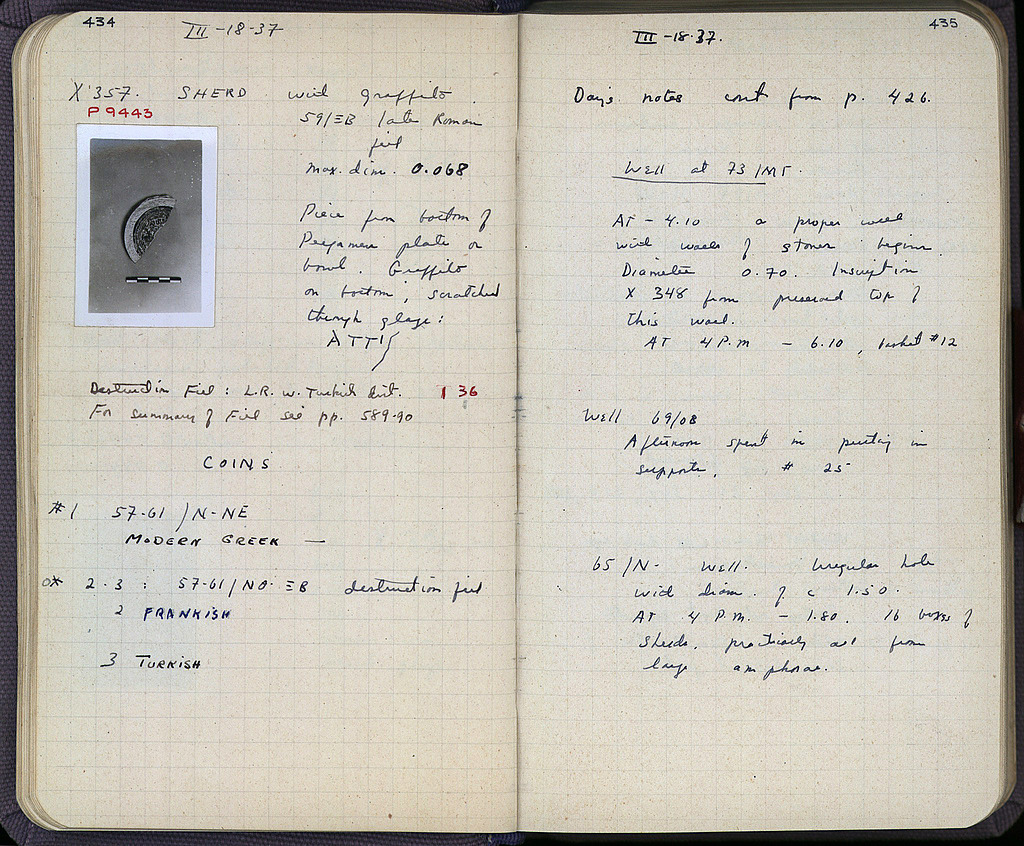 434
III -18-37
X'357. SHERD with graffito
P 9443
59/ΞB late Roman
fill
max. dim. 0.068
Piece from bottom of
Pergamene plate or
bowl. Graffito
on bottom, scratched
through glaze:
ATTI
Destruction Fill: L.R. w. Turkish dist. 1 36
For summary of Fill see pp. 589-90
COINS
#1 57-61 /N-NE
MODERN GREEK —
2-3: 57-61/NO-ΞB destruction fill
2 FRANKISH
3 TURKISH
435
III -18-37.
Day's notes cont from p. 426.
Well at 73/MT.
AT - 4.10 a proper well
with walls of stones begins.
Diameter 0.70. Inscription
X 348 from preserved top of
this well.
AT 4 P.M - 6.10, basket #12
Well 69/08
Afternoon spent in putting in
supports. # 25
65/N- Well. Irregular hole
with diam. of c 1.50.
AT 4 P.M. - 1.80. 16 boxes of
sherds, practically all from
large amphorae.